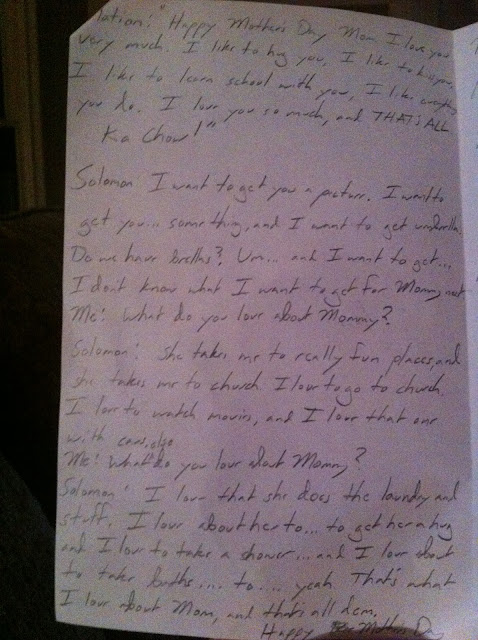 lation: "Happy Mother's Day Mom I love you
very much. I like to hug you, I like to kiss you,
I like to learn school with you, I like everything
you do. I love you so much, and THAT'S ALL
Ka Chow!"
Solomon I want to get you a picture. I want to
get you... something, and I want to get umbrella.
Do we have brellas? Um... and I want to get...
I don't know what I want to get for Mommy
Me: What do you love about Mommy?
Solomon: She takes me to really fun places, and
she takes me to church. I love to go to church.
I love to watch movies, and I love that one
with cars, also
Me: What do you love about Mommy?
Solomon: I love that she does the laundry and
stuff. I love about her to... to get her a hug
and I love to take a shower... and I love about
to take baths.... to.... yeah That's what
I love about Mom, and that's all
Happy Mothers Day